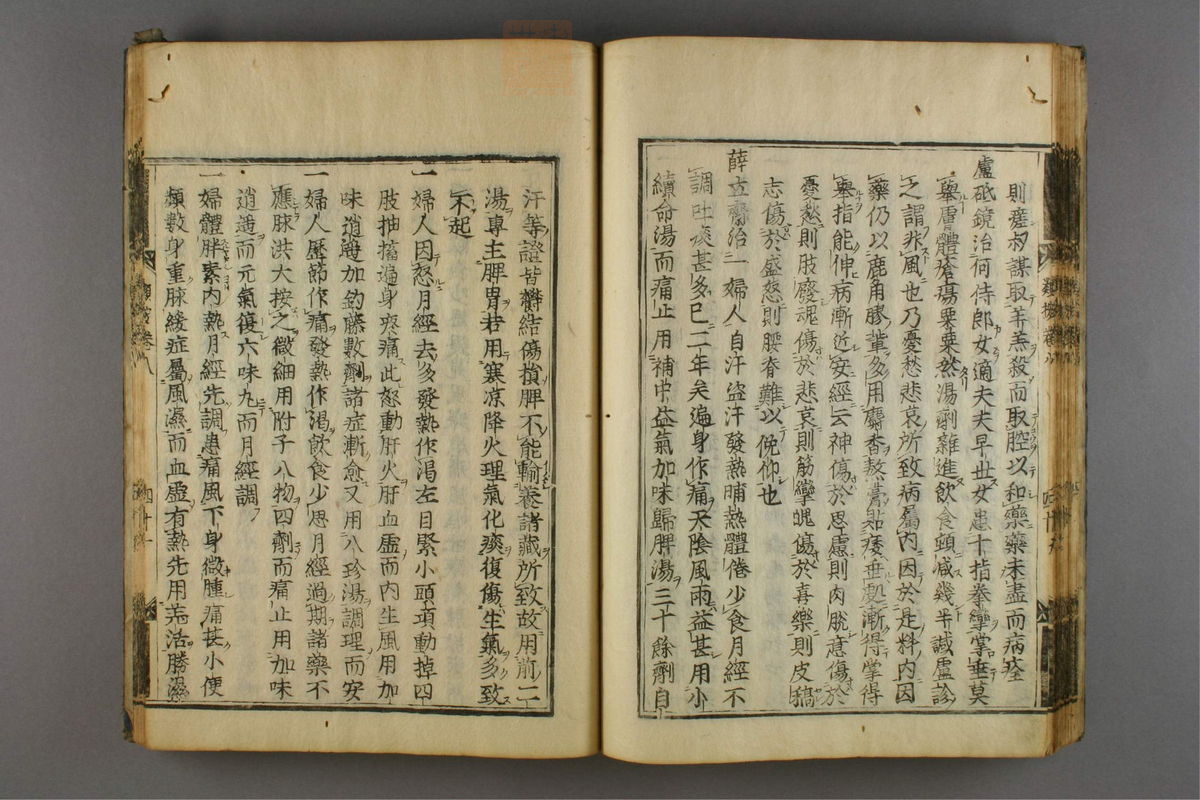 則瘥叔謀取羊羔殺而取腔以和藥藥未盡而病痊
盧砥鏡治何侍郎女適夫夫早世女患十指拳攣掌垂莫
舉膚體瘡瘍粟粟然湯劑雜進飲食頓減幾半載盧診
之謂非風也乃憂愁悲哀所致病屬內因於是料內因
藥仍以鹿角膠輩多用麝香熬膏貼痿垂處漸得掌得
舉指能伸病漸近安經云神傷於思慮則肉脫意傷於
憂愁則肢廢魂傷於悲哀則筋攣魄傷於喜樂則皮槁
志傷於盛怒則腰脊難以俛仰也
薛立齋治一婦人自汗盜汗發熱晡熱體倦少食月經不
調吐痰甚多已二年矣遍身作痛天陰風雨益甚用小
續命湯而痛止用補中益氣加味歸脾湯三十餘劑自
汗等證皆欝結傷損脾不能輸養諸藏所致故用前二
湯專主脾胃若用寒凉降火理氣化痰復傷生氣多致
不起
一婦人因怒月經去多發熱作渴左目緊小頭項動掉四
肢抽搐遍身疼痛此怒動肝火肝血虛而內生風用加
味逍遙加釣藤數劑諸症漸愈又用八珍湯調理而安
一婦人歷節作痛發熱作渴飲食少思月經過期諸藥不
應脉洪大按之微細用附子八物四劑而痛止用加味
逍遙而元氣復六味丸而月經調
一婦體胖素內熱月經先調患痛風下身微腫痛甚小便
頻數身重脉緩症屬風濕而血虛有熱先用羗活勝濕